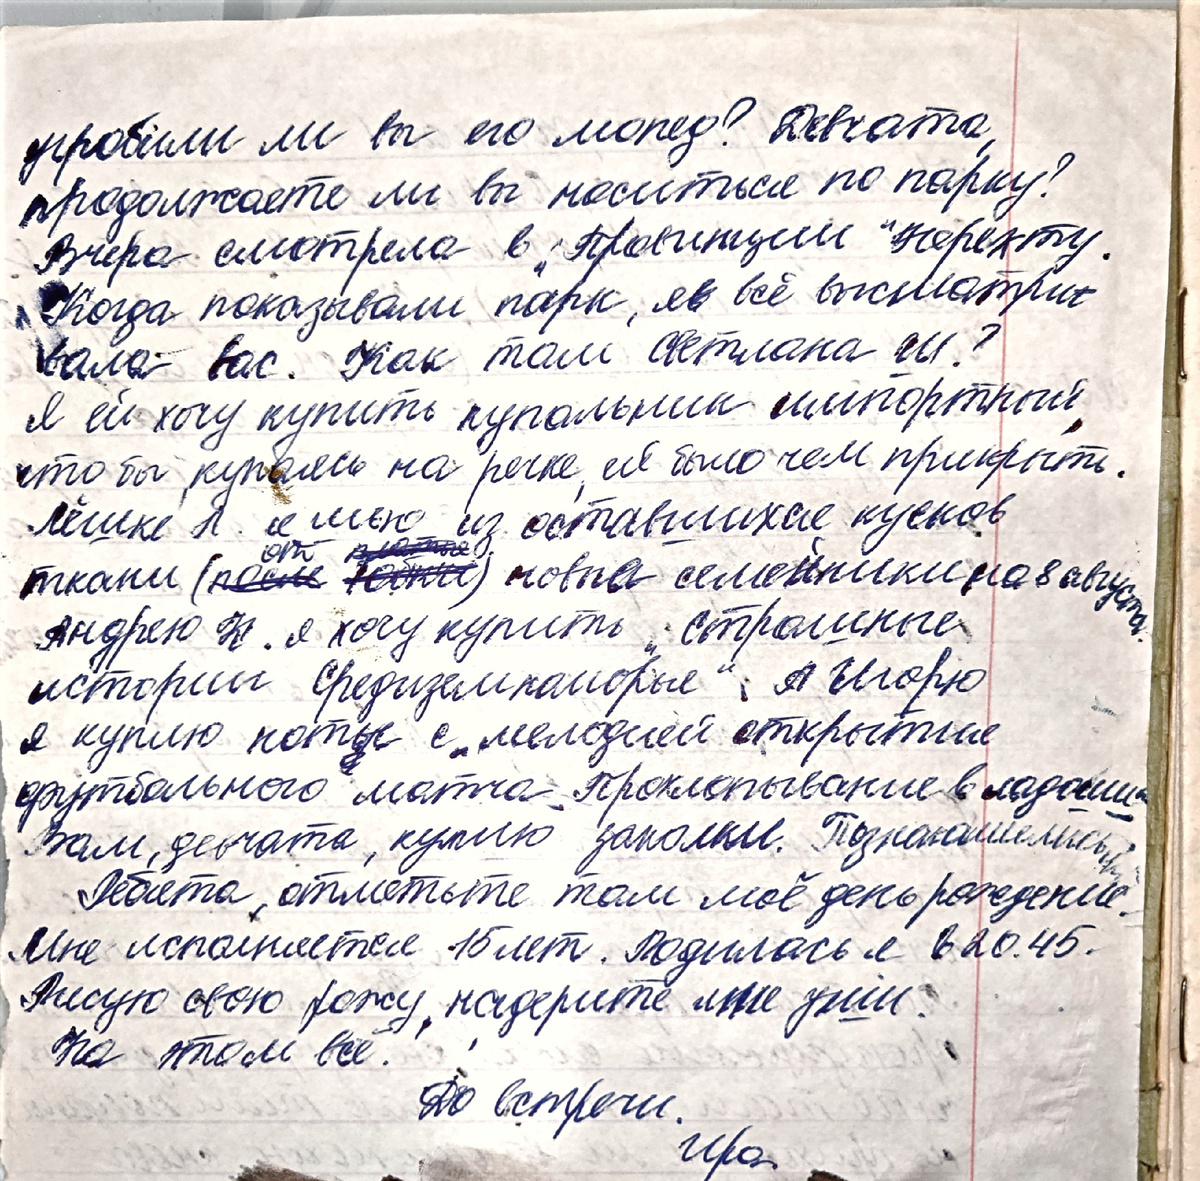 угробили ли вы его мопед? Девчата,
продолжаете ли вы носиться по парку?
Вчера смотрела в „Провинции" Нерехту.
Когда показывали парк, я всё высматри-
вала вас. Как там Светлана Ш.?
Я ей хочу купить купальник импортный,
что бы, купаясь на речке, ей было чем прикрыть.
Лёшке Л. я шью из оставшихся кусков
ткани (после от юбки платья) новые семейники на 8 августа.
Андрею К. я хочу купить „Страшные
истории Средиземноморье". А Игорю
я куплю ноты с „мелодией открытие
футбольного матча. Прохлопывание в ладоши"
Вам, девчата, куплю заколки.
Ребята, отметьте там моё день рождение.
Мне исполняется 15 лет. Родилась я в 20.45.
Рисую свою рожу, надерите мне уши.
На этом всё.
До встречи.
Ира